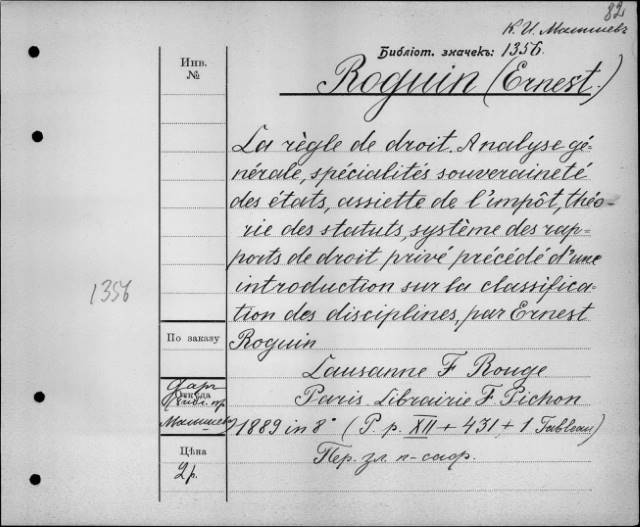 82
К. И. Малышевъ
Библіот. значекъ: 1356.
Инв.
№
Roguin (Ernest.)
La règle de droit. Analyse gé=
nérale, spécialités souveraineté
des états, assiette de l'impôt, théo-
rie des statuts, système des rap=
ports de droit privé précédé d'une
introduction sur la classifica=
tion des disciplines, par Ernest
Roguin
1356
По заказу
Lausanne F Rouge
Дар
Откуда
Paris. Librairie F. Pichon
Малышев
1889 in 8° (P. p. XII + 431 + 1 Tableau)
Цѣна
2 р.
Пер. зл. п-саф.